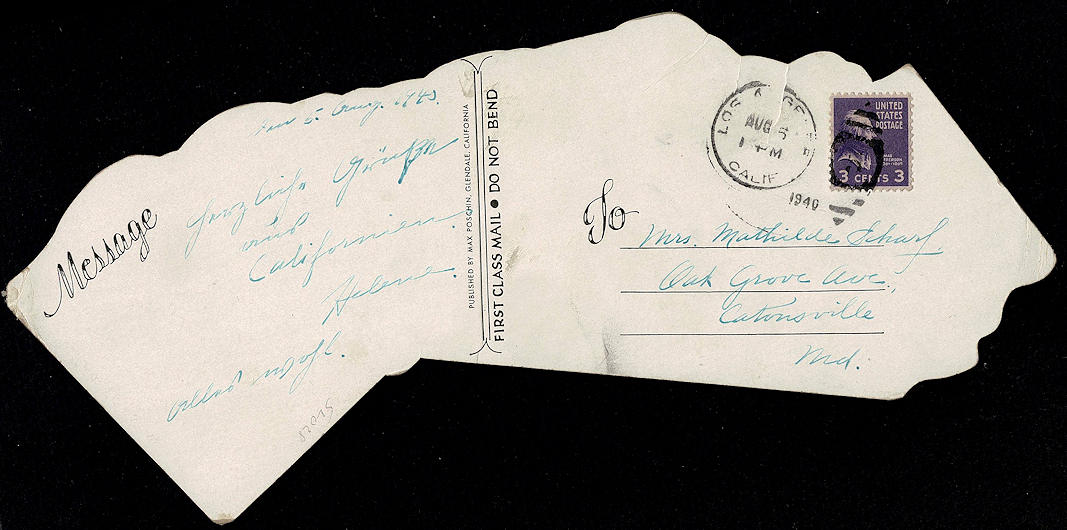 Message
den 5. Aug. 1940.
Herzliche Grüße
aus
Californien.
Helene.
Alles wohl.
PUBLISHED BY MAX POSCHIN, GLENDALE, CALIFORNIA
FIRST CLASS MAIL ● DO NOT BEND
LOS ANGELES
AUG 5
PM
CALIF
1940
UNITED
STATES
POSTAGE
3 CENTS 3
To
Mrs. Mathilde Scharf,
Oak Grove Ave.,
Catonsville
Md.